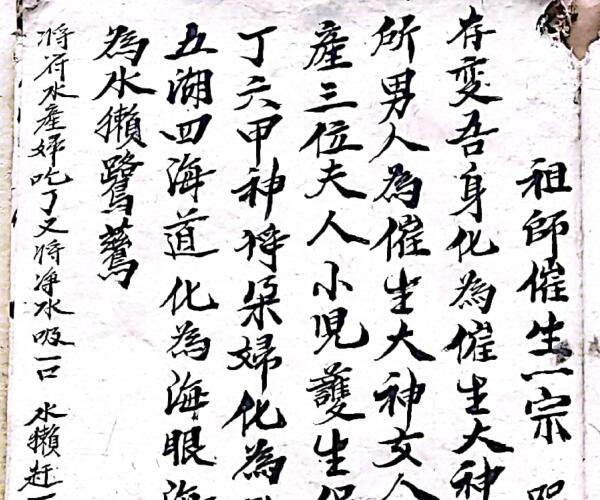 祖師催生一宗
存變吾身化為催生大神
所男人為催生大神女人
產三位夫人小児護生
丁六甲神將朵婦化為
五湖四海道化為海眼
為水獺鷺鶿
將符水產婦吃了又將净水吸一口 水獺赶一